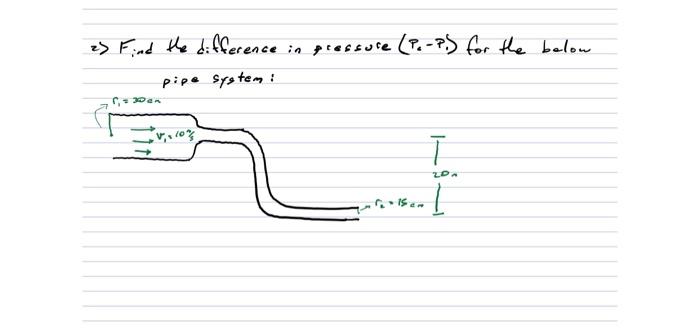 2) Find the difference in pressure (P2-P1) for the below
pipe system:
r1 = 30 cm
v1 = 10 m/s
20m
r2 = 15 cm